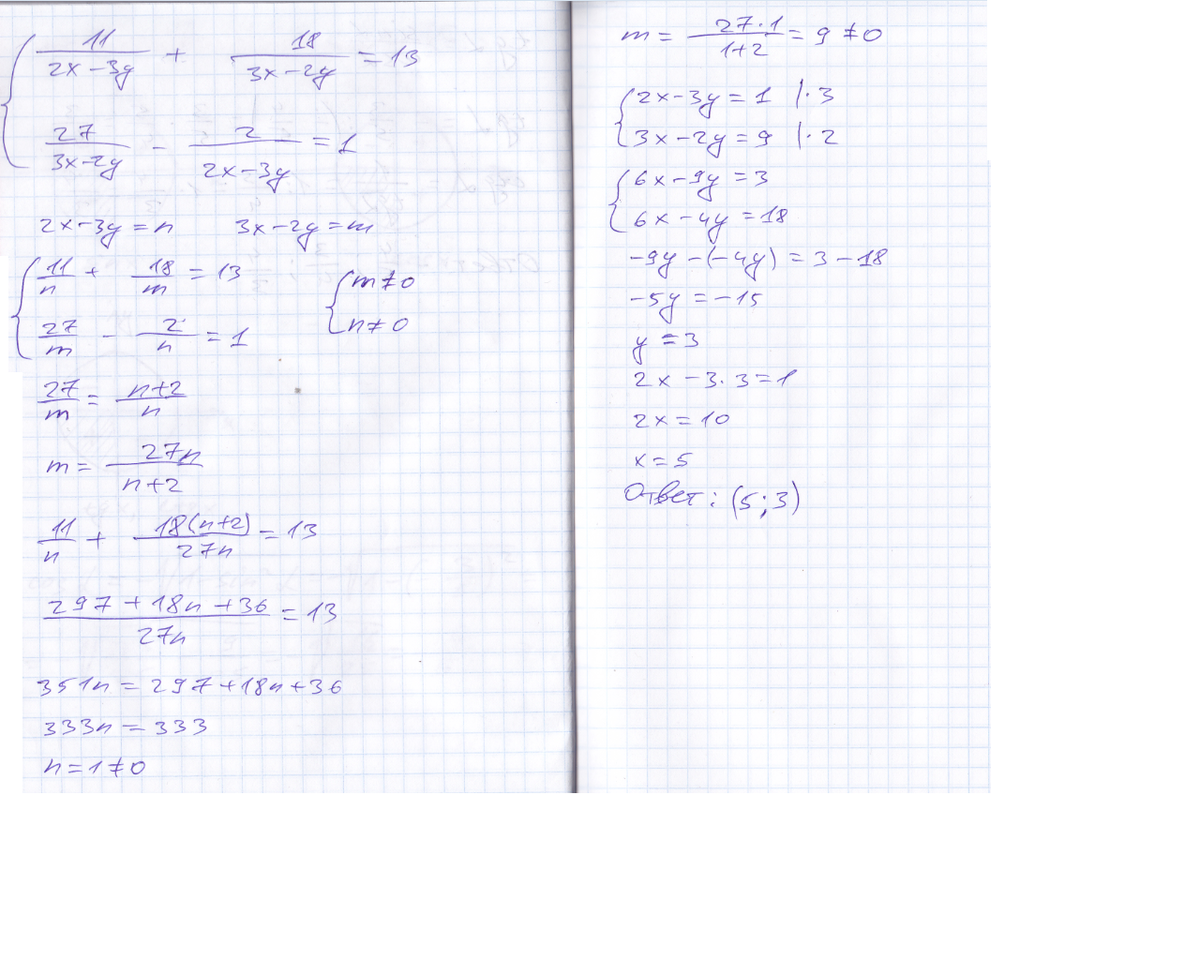 { 11/(2x-3y) + 18/(3x-2y) = 13
27/(3x-2y) - 2/(2x-3y) = 1
2x-3y=n 3x-2y=m
{ 11/n + 18/m = 13 { m≠0
27/m - 2/n = 1 n≠0
27/m = (n+2)/n
m = 27n/(n+2)
11/n + 18(n+2)/27n = 13
(297+18n+36)/27n = 13
351n=297+18n+36
333n=333
n=1≠0
m = 27·1/(1+2) = 9 ≠0
{ 2x-3y=1 |·3
3x-2y=9 |·2
{ 6x-9y=3
6x-4y=18
-9y-(-4y)=3-18
-5y=-15
y=3
2x-3·3=1
2x=10
x=5
Ответ: (5;3)